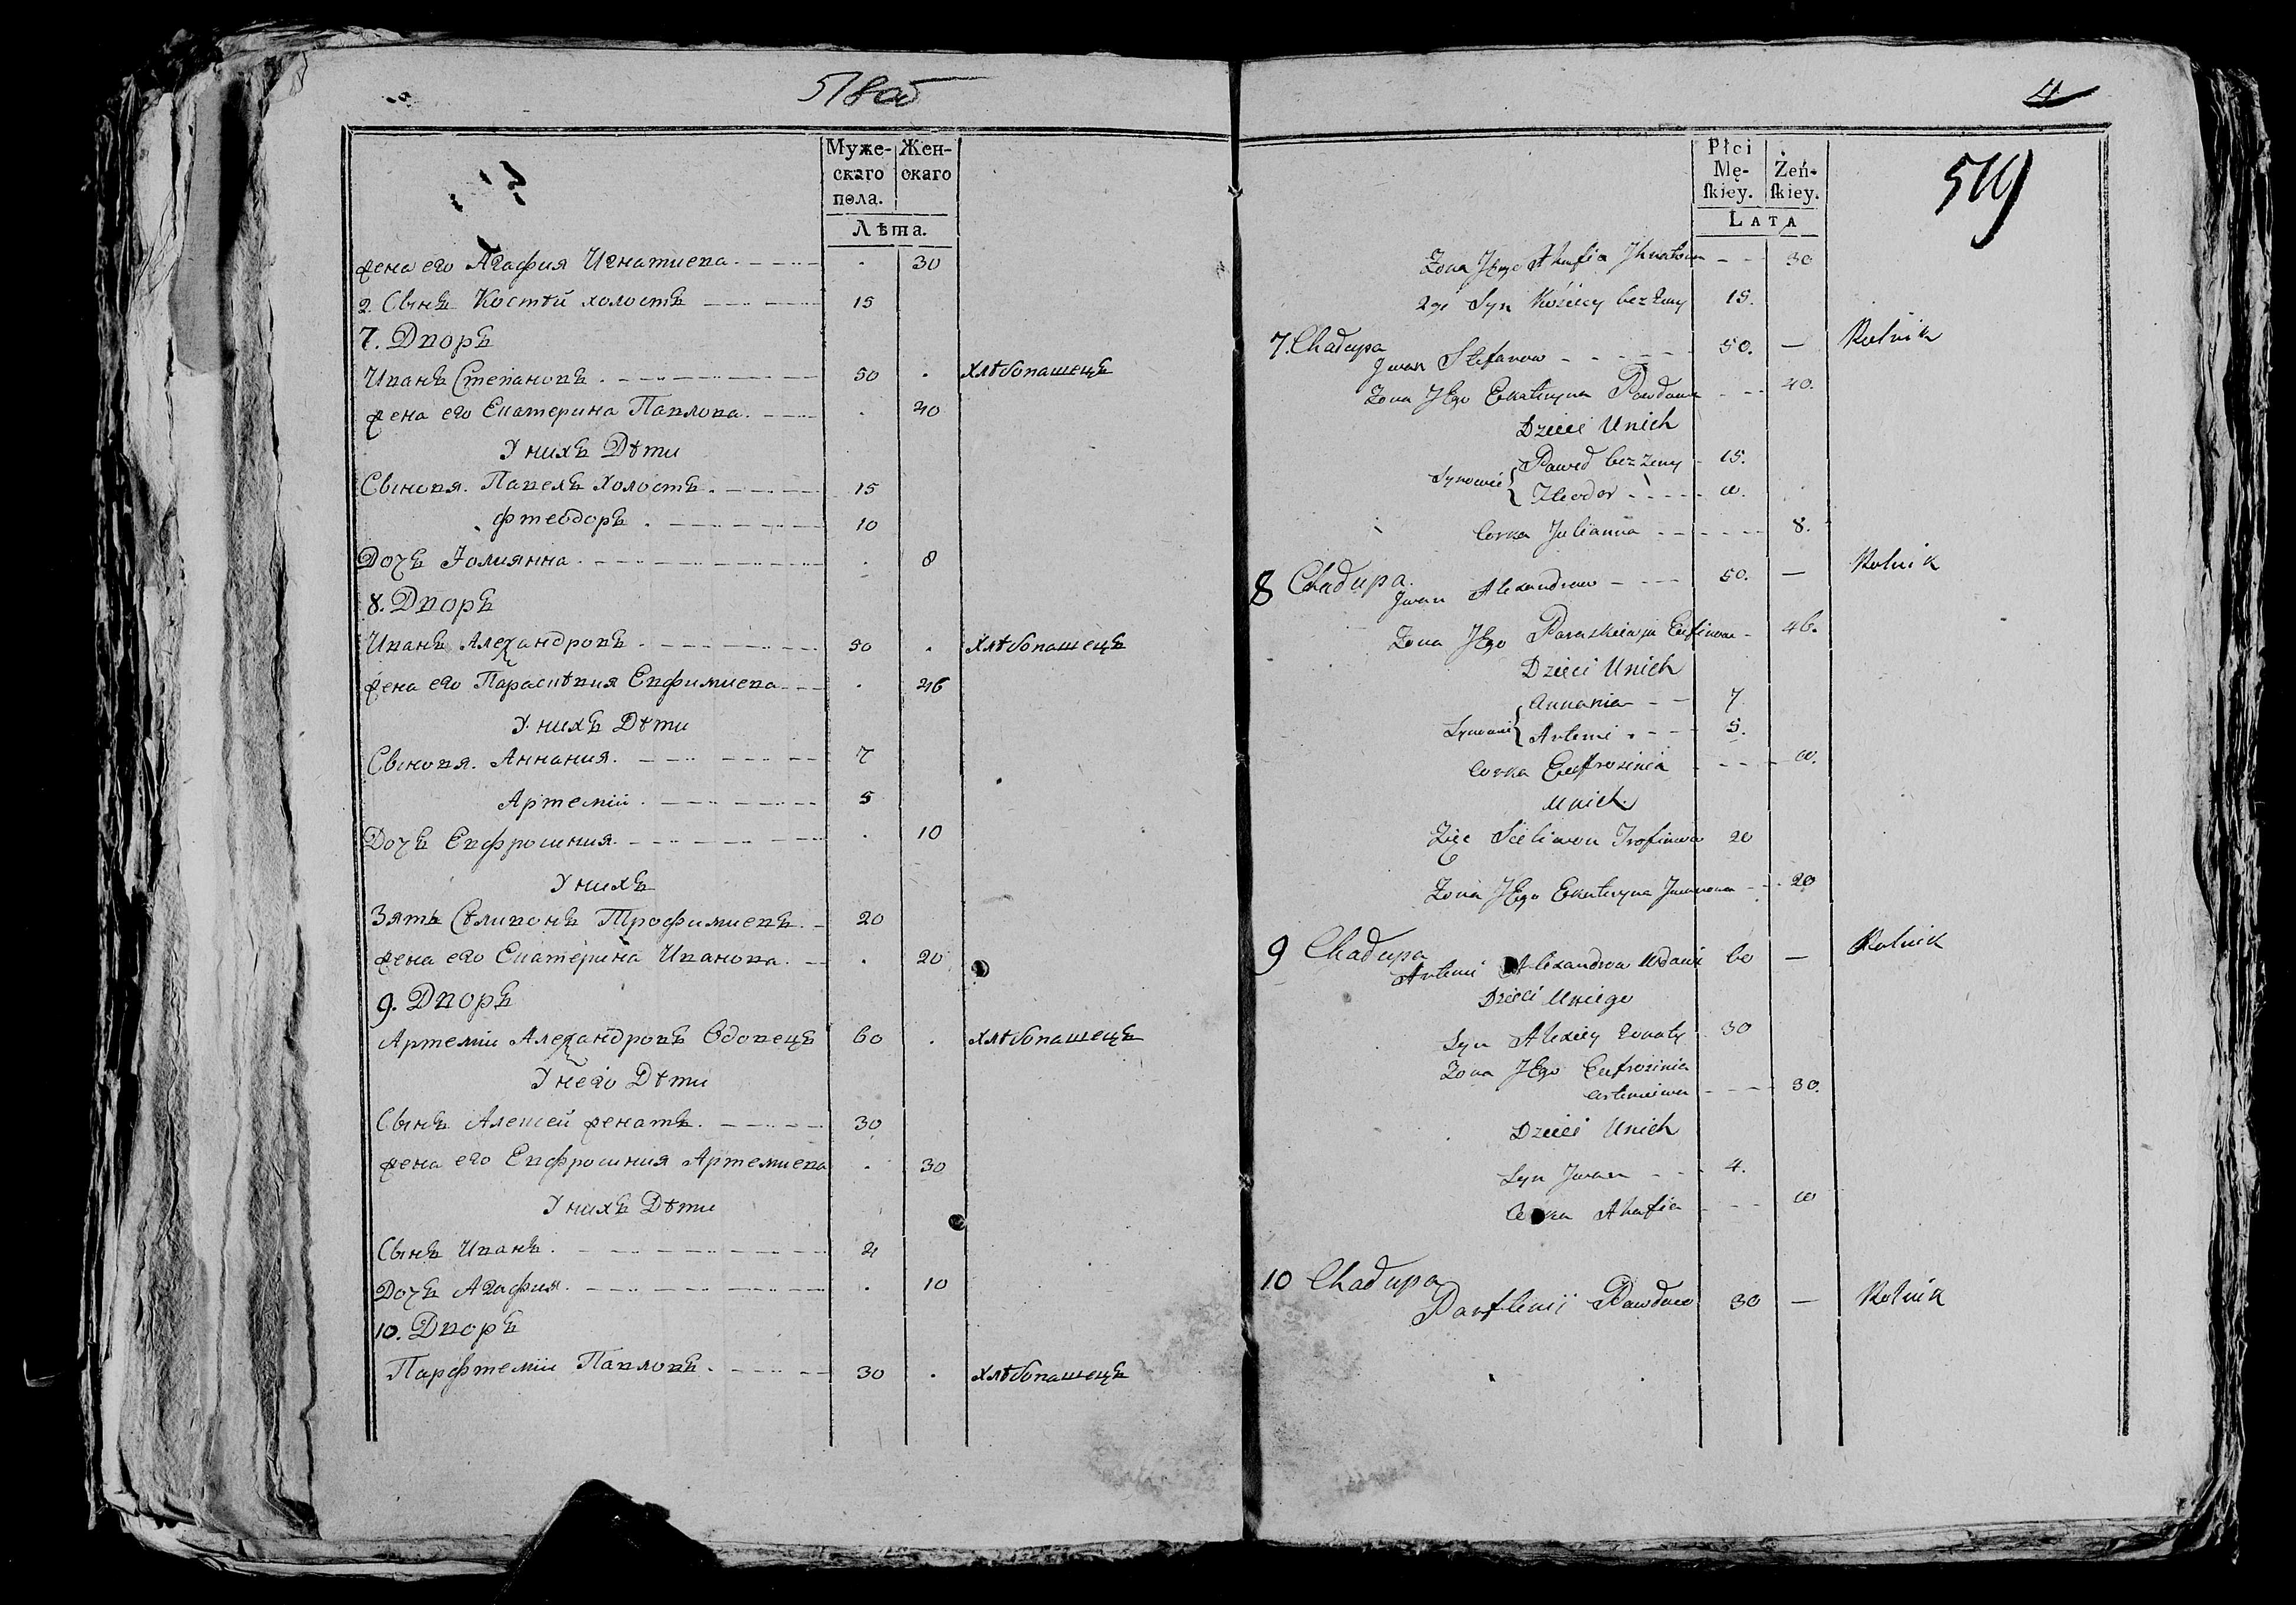 518об
Муже- Жен-
скаго скаго
пола.
Лѣта.
жена его Агафия Игнатиева . 30
2. Сынъ Костѣй холостъ 15
7. Дворъ
Иванъ Степановъ 50 . хлѣбопашецъ
жена его Екатерина Павлова . 40
У нихъ Дѣти
Сыновя. Павелъ Холостъ 15
Фтеодоръ 10
Дочъ Юлиянна . 8
8. Дворъ
Иванъ Алеѯандровъ 50 . хлѣбопашецъ
жена его Параскѣвия Евфимиева . 46
У нихъ Дѣти
Сыновя. Аннания 7
Артемии 5
Дочъ Евфросиния . 10
У нихъ
Зять Сѣливонъ Трофимиевъ 20
жена его Екатерина Иванова . 20
9. Дворъ
Артемии Алеѯандровъ Вдовецъ 60 . хлѣбопашецъ
У него Дѣти
Сынъ Алеѯей женатъ 30
жена его Евфросиния Артемиева . 30
У нихъ Дѣти
Сынъ Иванъ 4
Дочъ Агафия . 10
10. Дворъ
Парфтемии Павловъ 30 . хлѣбопашецъ
4
519
Płci
Mę- Żeń-
ſkiey. ſkiey.
LATA
Żona JEgo Ahafia Ihnatowa 30
2gi Syn Kościey bez żony 15.
7. Chałupa
Jwan Stefanow 50. — Rolnik
Żona JEgo Ekateryna Pawłowa 40.
Dzieci Unich
Synowie Paweł bez żony 15.
Fteodor 10.
Corka Julianna 8.
8 Chałupa.
Jwan Alexandrow 50. — Rolnik
Żona JEgo Paraskiewja Eufimowa 46.
Dzieci Unich
Annania 7
Synowie Artemi 5.
Corka Eufrosinia 10.
Unich
Zięc Sieliwon Trofimow 20
Żona JEgo Ekateryna Jwanowa 20
9 Chałupa
Artemi Alexandrow Wdowi 60 — Rolnik
Dzieci Uniego
Syn Alexiey żonaty 30
Żona JEgo Eufrosinia
Artemiewa 30.
Dzieci Unich
Syn Jwan 4.
Corka Ahafia 10
10 Chałupa
Parftemii Pawłow 30 — Rolnik